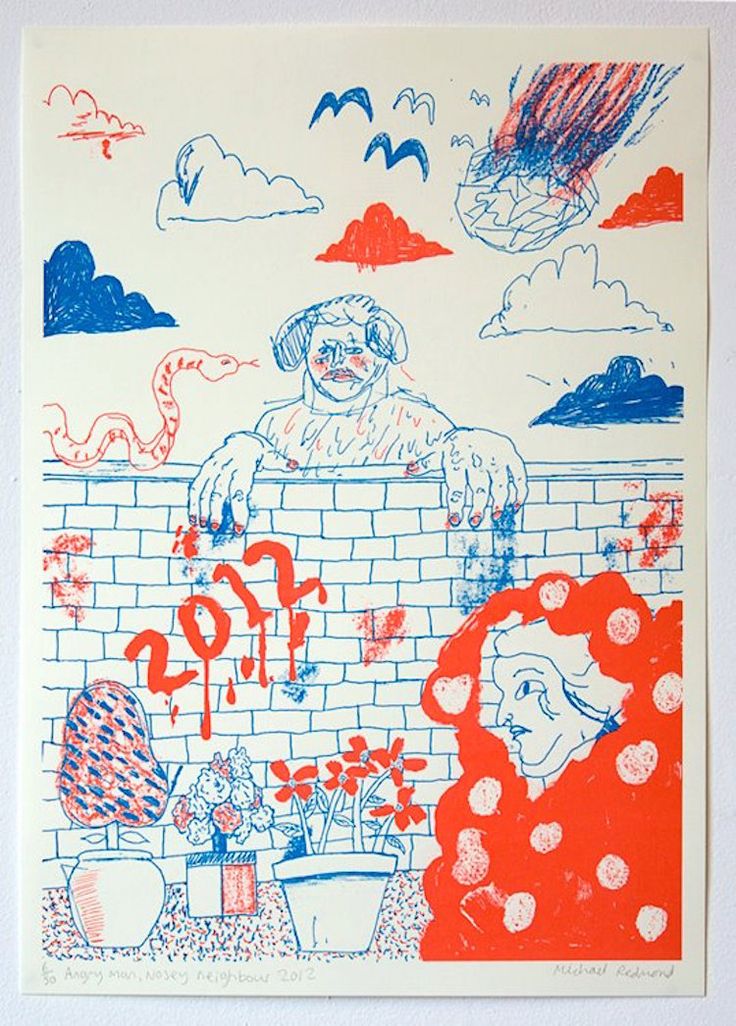 2012
6/50 Angry Man, Nosey Neighbour 2012
Michael Redmond